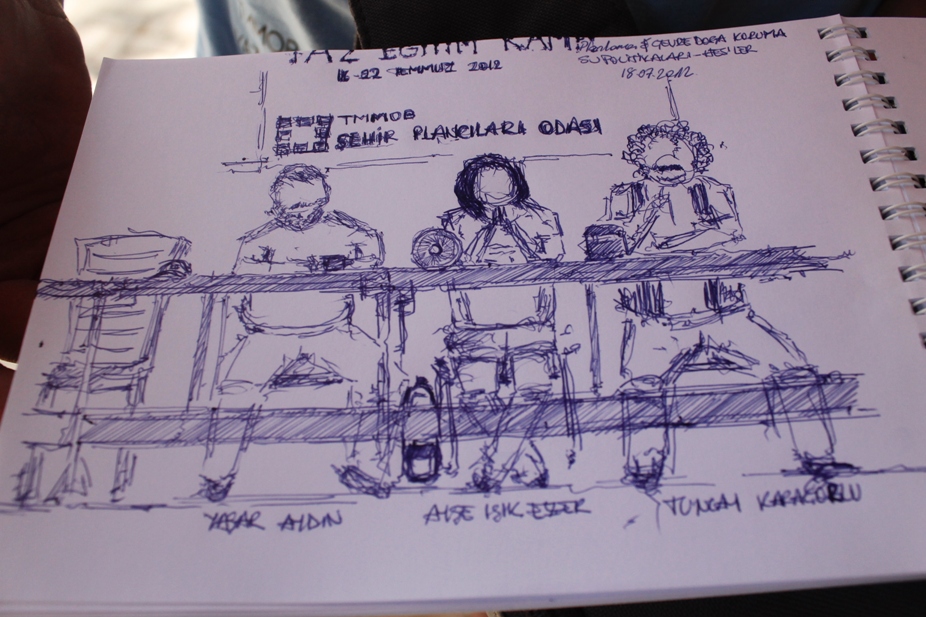 YAZ EĞİTİM KAMPI
16-22 TEMMUZ 2012
Planlama & ÇEVRE DOĞA KORUMA
SU POLİTİKALARI - HESLER
18.07.2012
TMMOB
ŞEHİR PLANCILARI ODASI
YAŞAR AYDIN
AYŞE IŞIK EZER
TUNCAY KARAÇORLU